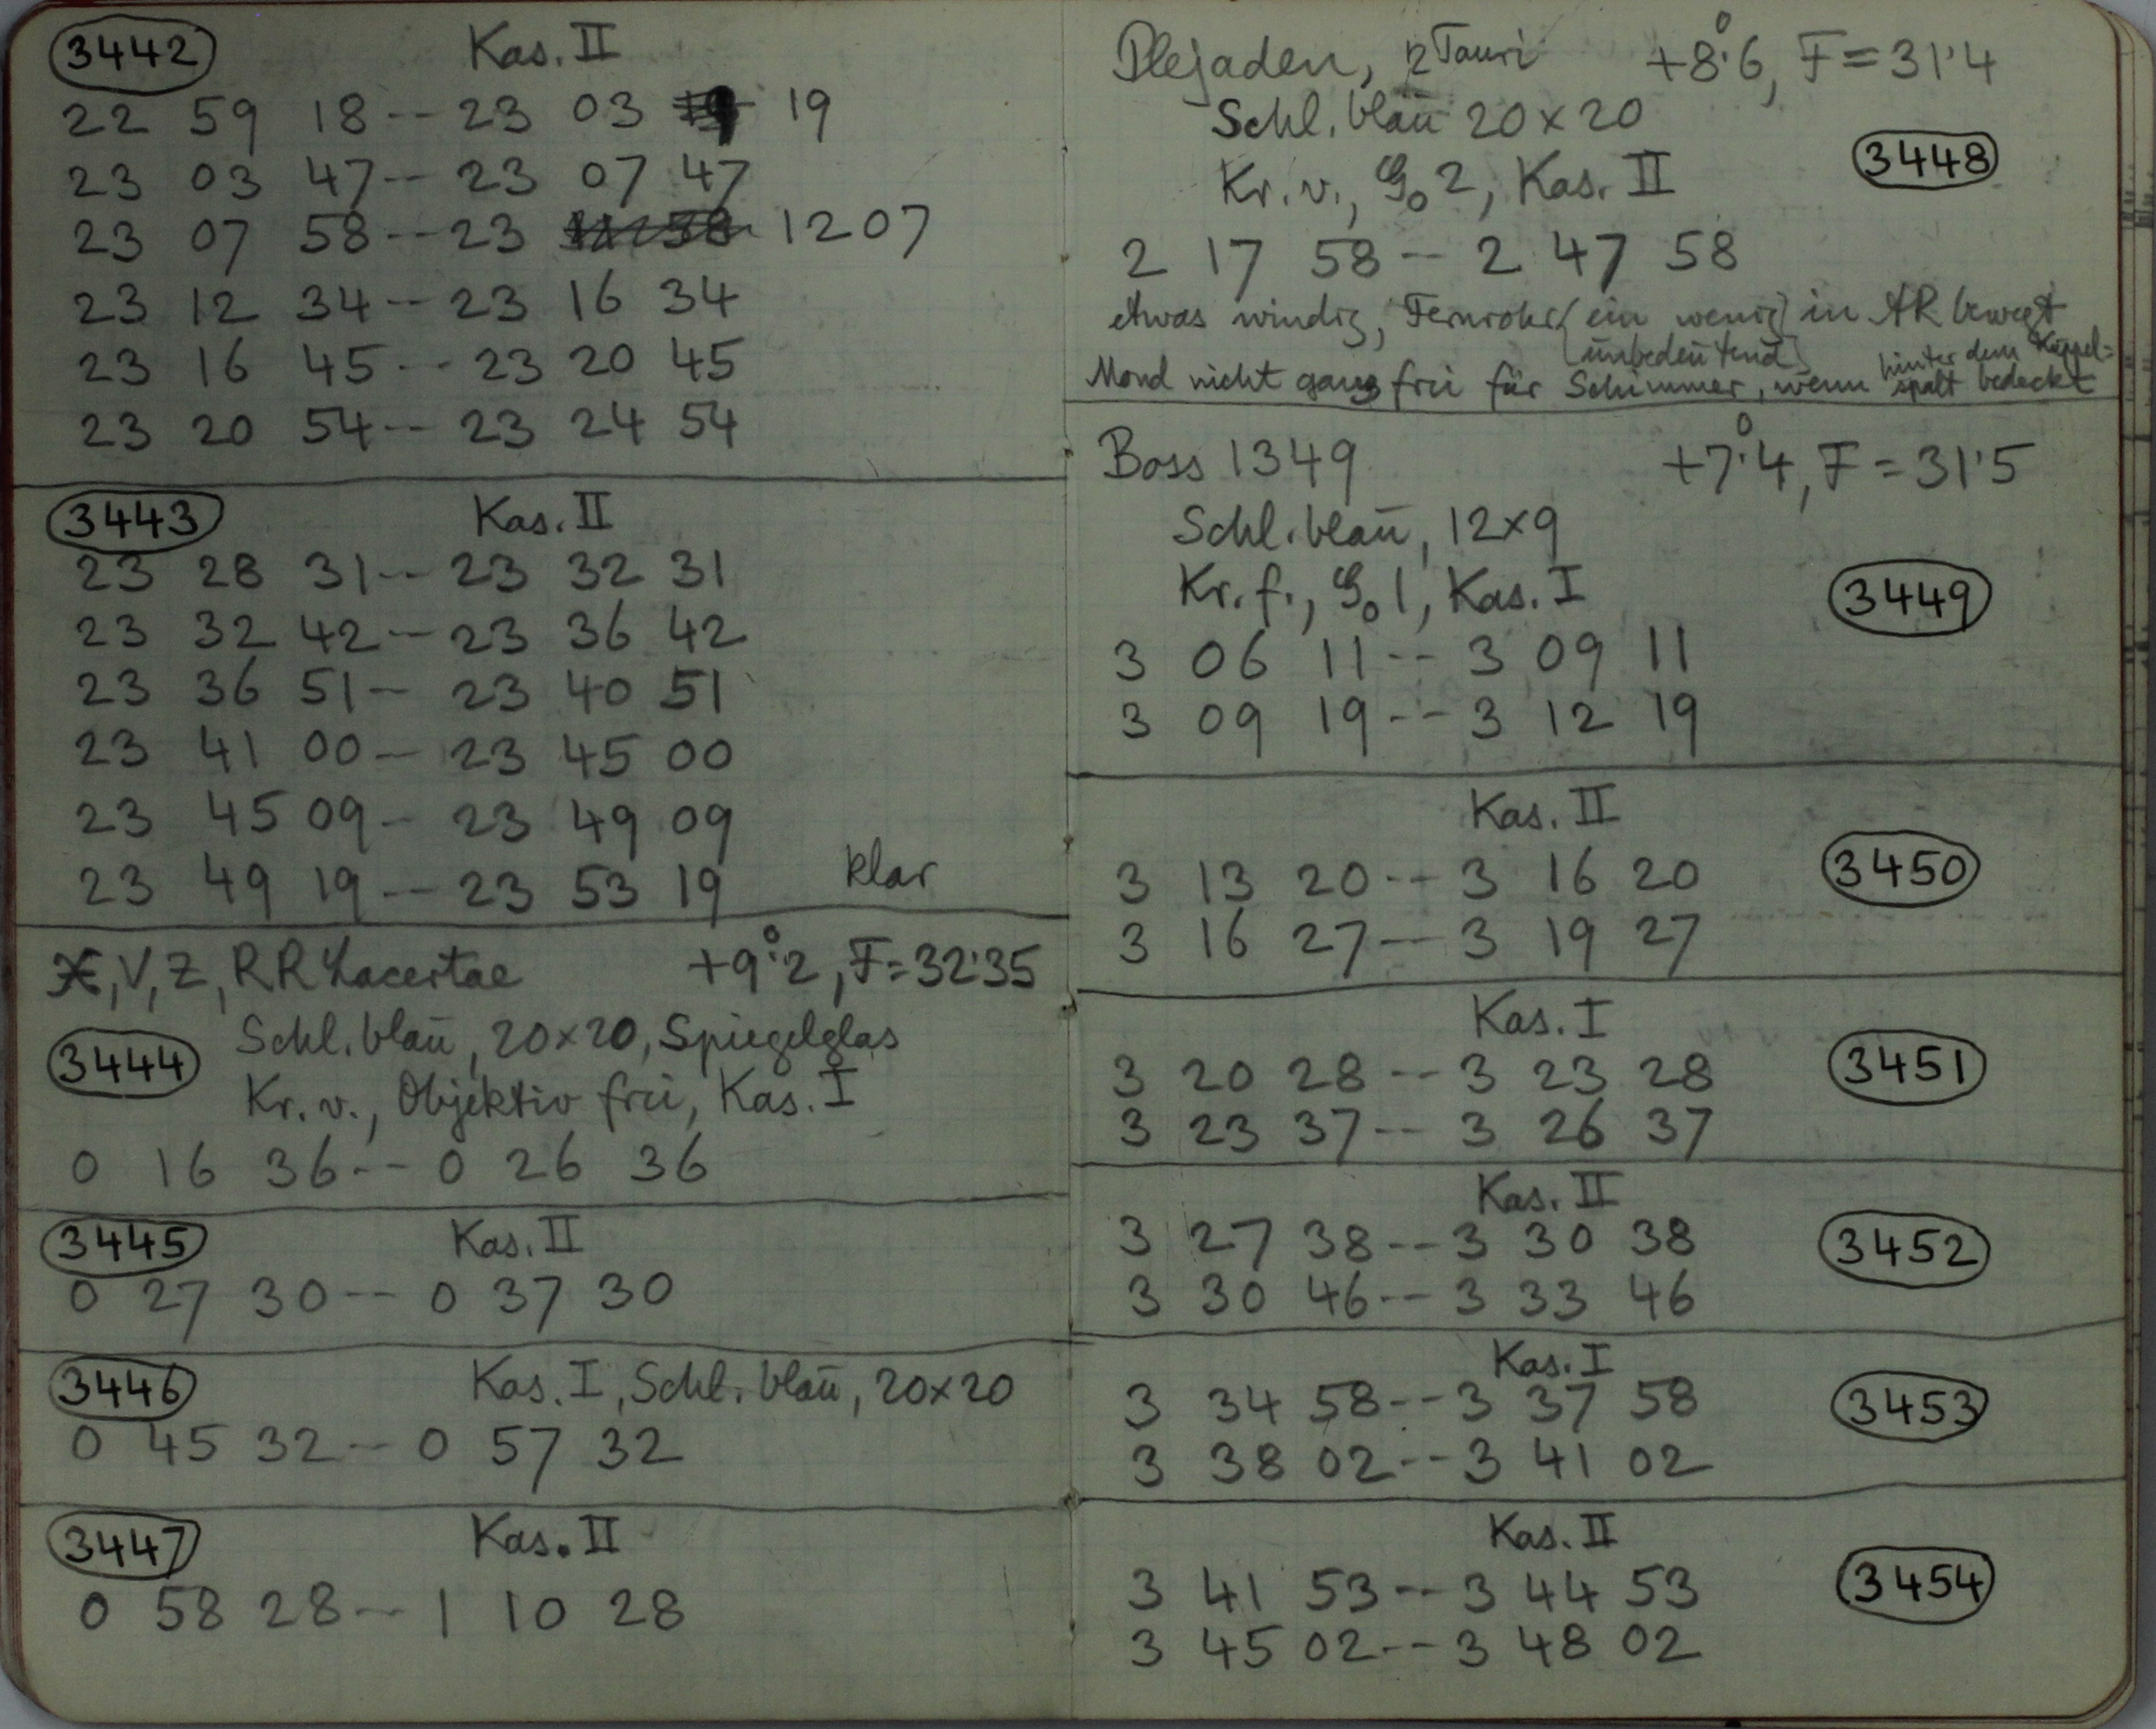 3442 Kas. II
22 59 18 -- 23 03 19
23 03 47 -- 23 07 47
23 07 58 -- 23 11 58 12 07
23 12 34 -- 23 16 34
23 16 45 -- 23 20 45
23 20 54 -- 23 24 54
3443 Kas. II
23 28 31 -- 23 32 31
23 32 42 -- 23 36 42
23 36 51 -- 23 40 51
23 41 00 -- 23 45 00
23 45 09 -- 23 49 09
23 49 19 -- 23 53 19 klar
V, Z, RR Lacertae +9°.2, F=32.35
Schl. blau, 20×20, Spiegelglas
3444
Kr. v., Objektiv frei, Kas. I
0 16 36 -- 0 26 36
3445 Kas. II
0 27 30 -- 0 37 30
3446 Kas. I, Schl. blau, 20×20
0 45 32 -- 0 57 32
3447 Kas. II
0 58 28 -- 1 10 28
Plejaden, η Tauri +8°.6, F=31.4
Schl. blau 20×20
3448
Kr. v., 2, Kas. II
2 17 58 -- 2 47 58
etwas windig, Fernrohr (ein wenig) in AR bewegt
(unbedeutend)
Mond nicht ganz frei für Schimmer, wenn hinter dem Kuppel=
spalt bedeckt
Boss 1349 +7°.4, F=31.5
Schl. blau, 12×9
Kr. f., 1, Kas. I
3449
3 06 11 -- 3 09 11
3 09 19 -- 3 12 19
Kas. II
3450
3 13 20 -- 3 16 20
3 16 27 -- 3 19 27
Kas. I
3451
3 20 28 -- 3 23 28
3 23 37 -- 3 26 37
Kas. II
3452
3 27 38 -- 3 30 38
3 30 46 -- 3 33 46
Kas. I
3453
3 34 58 -- 3 37 58
3 38 02 -- 3 41 02
Kas. II
3454
3 41 53 -- 3 44 53
3 45 02 -- 3 48 02